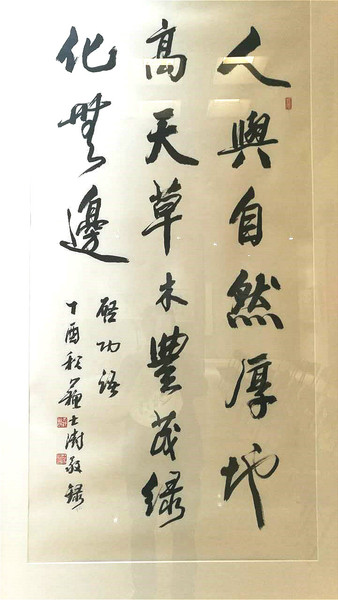 人與自然厚地
高天草木豐茂綠
化無邊
啟功語
丁酉秋蘇士澍敬錄